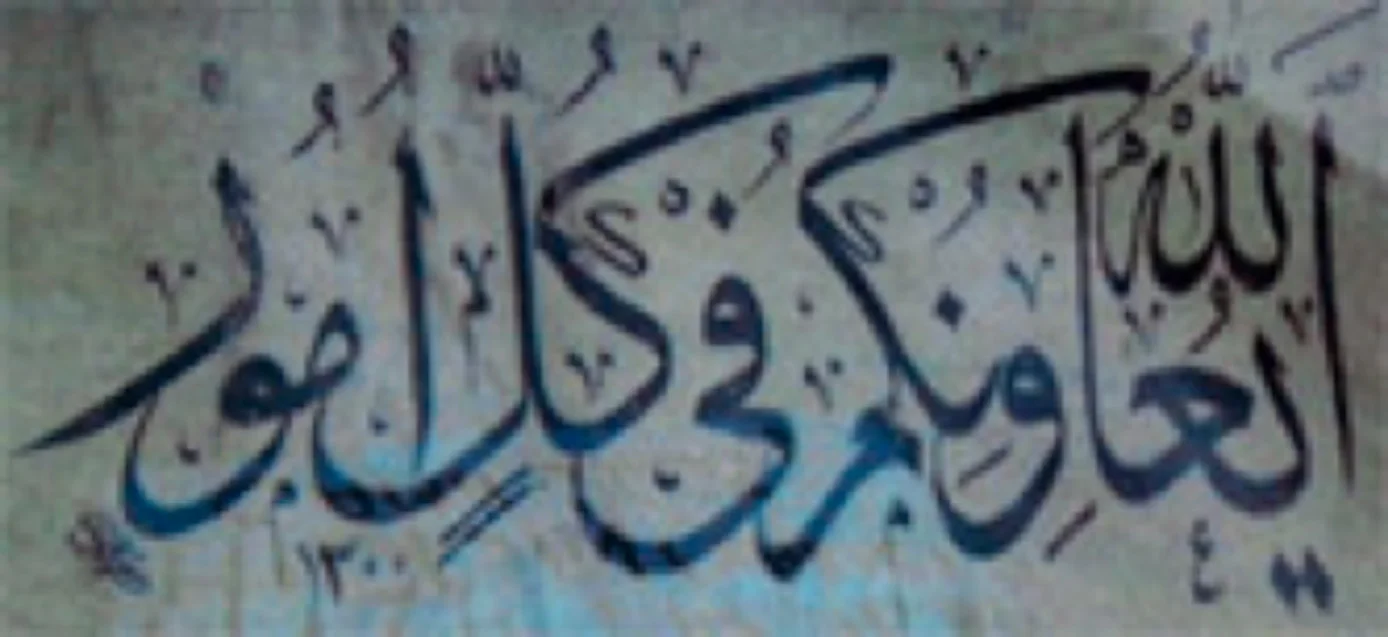 الله يعاونكم فى كل امور
١٣٠٠